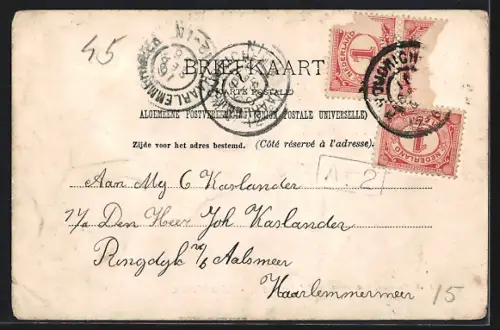 45
BRIEFKAART
CARTE POSTALE
ALGEMEENE POSTVEREENIGING (UNION POSTALE UNIVERSELLE)
Zijde voor het adres bestemd. (Côté réservé à l'adresse).
NEDERLAND
1
NEDERLAND
1
HAARLEMMERMEER
A-2
Aan Mej C Kaslander
p/a Den Heer Joh Kaslander
Ringdyk n/b Aalsmeer
Haarlemmermeer
15